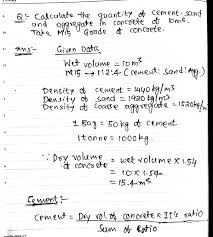 Q:- Calculate the quantity of cement, sand
and aggregate in concrete of 10m³.
Take M15 Grade of concrete.
Ans:- Given Data
Wet volume = 10m³
M15 → 1:2:4 (cement: sand: Agg.)
Density of cement = 1440 kg/m³
Density of sand = kg/m³
Density of coarse aggregate =
1 Bag = 50 kg of cement
1 tonne = 1000 kg.
∴ Dry volume = wet volume × 1.54
of concrete
= 10 × 1.54
= 15.4 m³
Cement:-
Cement = Dry vol. of concrete × It's ratio
Sum of Ratio